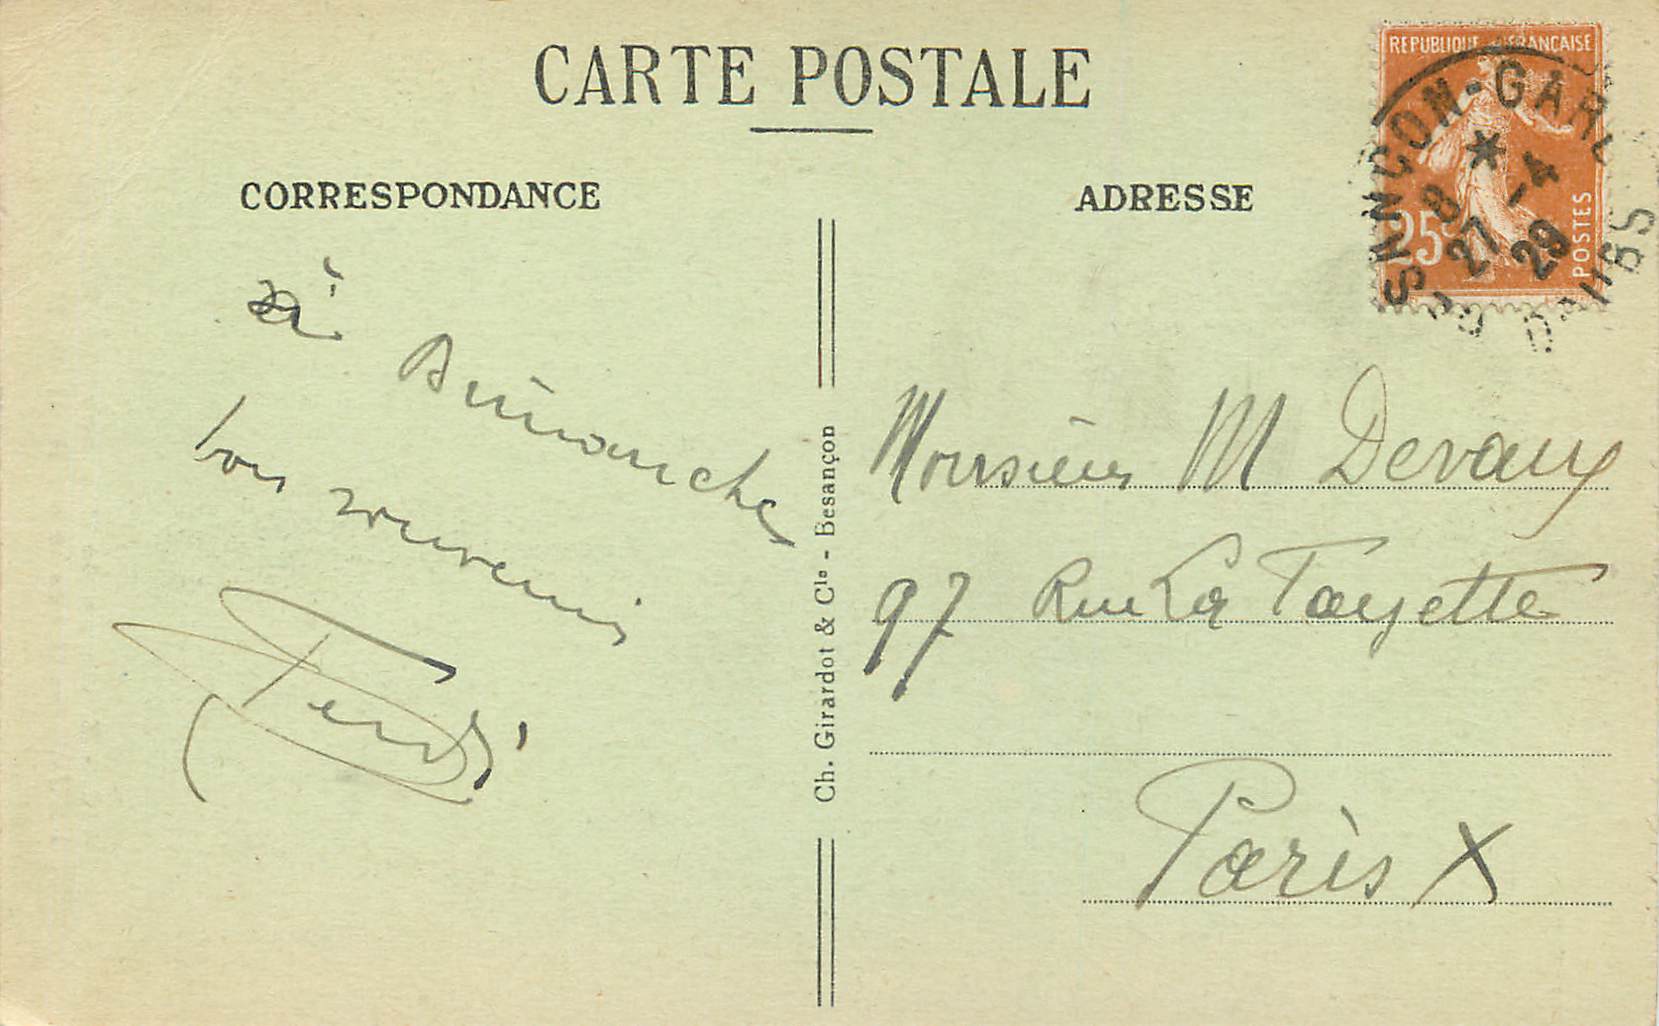 CARTE POSTALE
CORRESPONDANCE
ADRESSE
REPUBLIQUE FRANCAISE
25c
POSTES
BESANCON-GARE
*
8
27-4
29
DOUBS
à Dimanche
bons souvenirs
Ferdi
Ch. Girardot & Cie - Besançon
Monsieur M Devaux
97 Rue La Fayette
Paris X